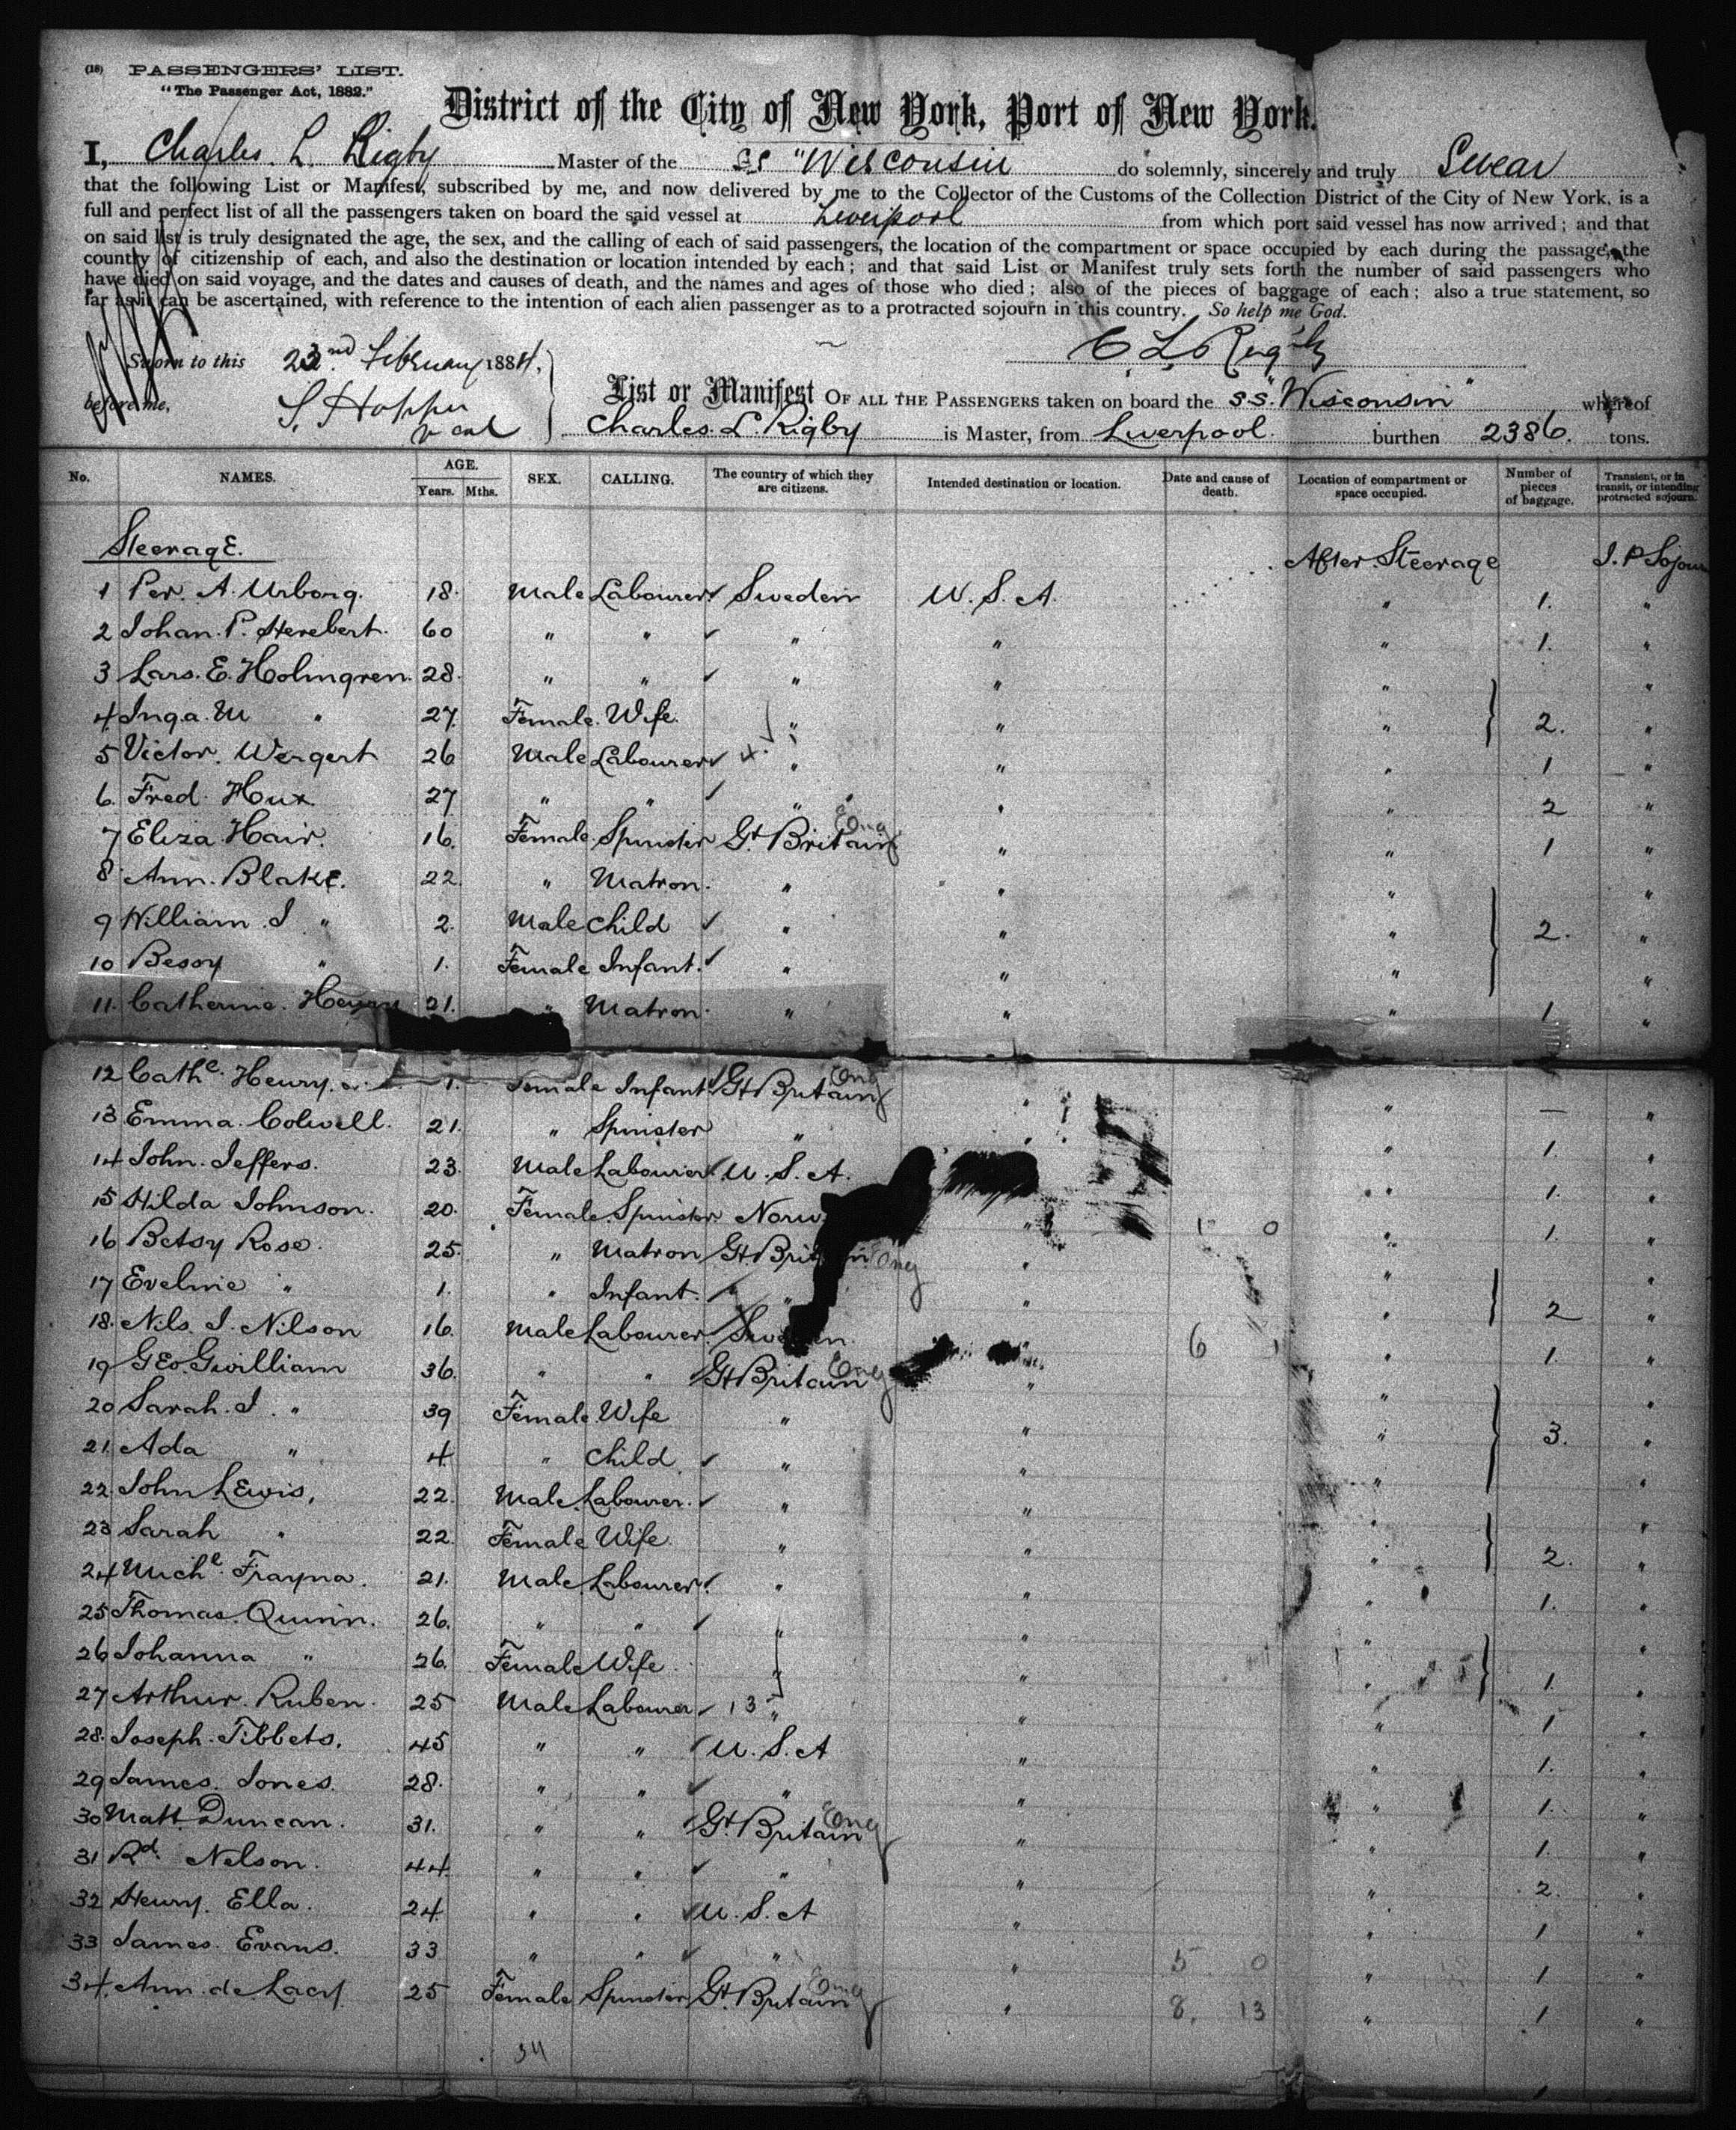 (18) PASSENGERS' LIST.
"The Passenger Act, 1882."
District of the City of New York, Port of New York.
I, Charles. L. Rigby Master of the SS "Wisconsin do solemnly, sincerely and truly Swear
that the following List or Manifest, subscribed by me, and now delivered by me to the Collector of the Customs of the Collection District of the City of New York, is a
full and perfect list of all the passengers taken on board the said vessel at Liverpool from which port said vessel has now arrived; and that
on said list is truly designated the age, the sex, and the calling of each of said passengers, the location of the compartment or space occupied by each during the passage, the
country of citizenship of each, and also the destination or location intended by each; and that said List or Manifest truly sets forth the number of said passengers who
have died on said voyage, and the dates and causes of death, and the names and ages of those who died; also of the pieces of baggage of each; also a true statement, so
far as it can be ascertained, with reference to the intention of each alien passenger as to a protracted sojourn in this country. So help me God.
C L Rigby
Sworn to this 23nd February 1884,
before me, S. Hopper
List or Manifest OF ALL THE PASSENGERS taken on board the S.S. "Wisconsin" whereof
Charles. L. Rigby is Master, from Liverpool. burthen 2386. tons.
No. NAMES. AGE. Years. Mths. SEX. CALLING. The country of which they are citizens. Intended destination or location. Date and cause of death. Location of compartment or space occupied. Number of pieces of baggage. Transient, or in transit, or intending protracted sojourn.
Steerage. After Steerage I. P Sojour
1 Per. A. Urborg. 18. Male Labourer Sweden U. S. A. " 1. "
2 Johan. P. Herebert. 60 " " " " " 1. "
3 Lars. E. Holmgren. 28. " " " " " "
4. Inga. M " 27. Female. Wife. " " " 2. "
5 Victor. Wergert 26 Male Labourer 4. " " " 1 "
6. Fred. Hux. 27 " " " " " 2 "
7 Eliza Hair. 16. Female. Spinster Gt Britain Eng " " 1 "
8 Ann. Blake. 22. " Matron. " " " "
9 William. J " 2. Male Child " " " 2. "
10 Bessy " 1. Female Infant. " " " "
11. Catherine. Henry 21. " Matron. " " " 1 "
12 Cathe. Henry. 1. Female Infant Gt Britain Eng " " — "
13 Emma. Colwell. 21. " Spinster " " " 1. "
14 John. Jeffers. 23. Male Labourer U. S. A. " 1. "
15 Hilda Johnson. 20. Female. Spinster Norw " 1 0 " 1. "
16 Betsy Rose. 25. " Matron Gt Britain Eng " " "
17 Eveline " 1. " Infant. " " " 2 "
18. Nils. J. Nilson 16. Male Labourer. Sweden. " 6 1 " 1. "
19 Geo. Gwilliam 36. " " Gt Britain Eng " " "
20 Sarah. J. " 39 Female Wife " " " 3. "
21. Ada " 4 " Child. " " " "
22. John Lewis, 22. Male Labourer. " " " "
23 Sarah " 22. Female Wife. " " " 2. "
24 Michl. Frayna. 21. Male Labourer. " " " 1. "
25 Thomas. Quinn. 26. " " " " " "
26 Johanna " 26. Female Wife " " " 1. "
27 Arthur. Ruben. 25 Male Labourer 13 " " " 1 "
28. Joseph. Tibbets. 45 " " U. S. A " " 1. "
29 James. Jones. 28. " " " " " 1. "
30 Matt Duncan. 31. " " Gt Britain Eng " " 1. "
31 Rd. Nelson. 44. " " " " " 2. "
32 Henry. Ella. 24. " " U. S. A " " 1 "
33 James. Evans. 33 " " " " 5 0 " 1 "
34. Ann. de. Lacy. 25 Female Spinster Gt Britain Eng " 8, 13 " 1 "
34